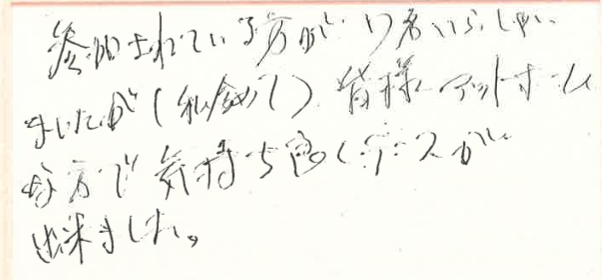 参加されている方が17名いらっしゃい
ましたが（私含めて）皆様アットホーム
な方で気持ち良くデースが
出来ました。